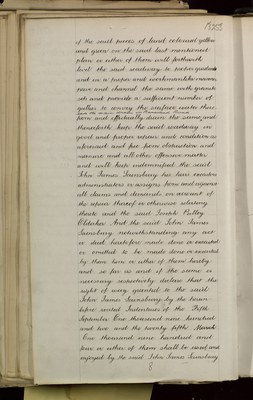 of the said pieces of land coloured yellow
and green on the said last mentioned
plan or either of them will forthwith
lent the said roadway to proper gradients
and in a proper and workmanlike manner
pave and channel the same with granite
sets and provide a sufficient number of
gullies to convey the surface water there
from and effectually drain the same and
thereafter keep the said roadway in
good and proper repair and condition as
aforesaid and free from obstruction and
nuisance and all other offensive matter
and will keep indemnified the said
John James Sainsbury his heirs executors
administrators or assigns from and against
all claims and demands on account of
the repair thereof or otherwise relating
thereto and the said Joseph
and the said John James
Sainsbury notwithstanding any act
or deed heretofore made done or executed
or omitted to be made done or executed
by them him or either of them hereby
and so far as and if the same is
necessary respectively declare that the
right of way granted to the said
John James Sainsbury by the herein
before recited Indentures of the Fifth
September One thousand nine hundred
and two and the twenty fifth March
One thousand nine hundred and
four or either of them shall be used and
enjoyed by the said John James Sainsbury
8